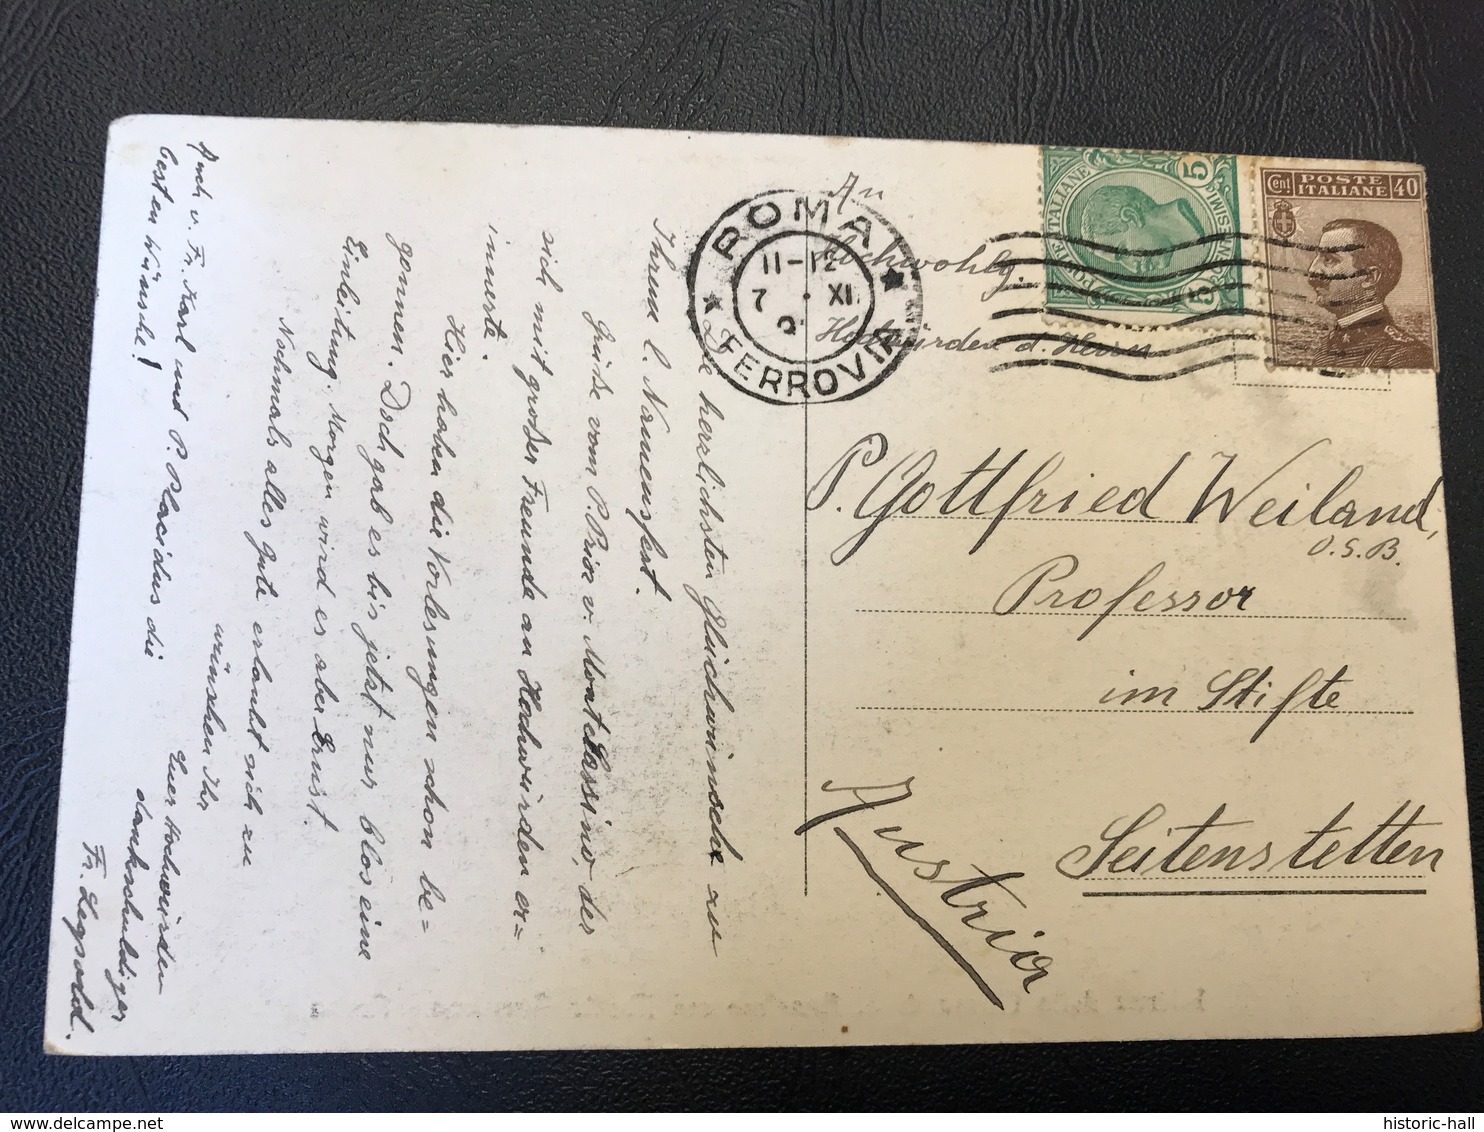 Die herzlichsten Glückwünsche zu
Ihrem l. Namensfest.
Grüße vom P. Prior v. Monte Cassino, der
sich mit großer Freunde an Hochwürden er=
innerte.
Hier haben die Vorlesungen schon be=
gonnen. Doch gab es bis jetzt nur blos eine
Einleitung. Morgen wird es aber Ernst.
Nochmals alles Gute erlaubt sich zu
wünschen Ihr
Euer Hochwürden
dankschuldiger
Fr. Leopold.
Auch v. Fr. Karl und P. Placidus die
besten Wünsche!
An
Hochwohlg.
Hochwürden d. Herrn
P. Gottfried Weiland,
O.S.B.
Professor
im Stifte
Seitenstetten
Austria
ROMA
11-12
7 XI
FERROVIA
POSTE ITALIANE
5 5
Cent POSTE ITALIANE 40
historic-hall
delcampe.net